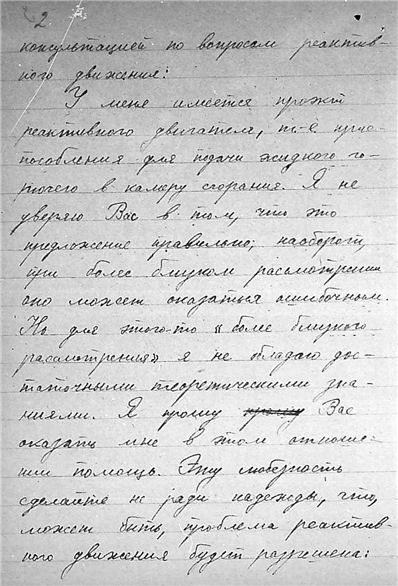 2
консультацией по вопросам реактив-
ного движения:
У меня имеется проэкт
реактивного двигателя, т.-е. приспо-
пособления для подачи жидкого го-
рючего в камеру сгорания. Я не
уверяю Вас в том, что это
предложение правильно; наоборот,
при более близком рассмотрении
оно может оказаться ошибочным.
Но для этого-то "более близкого
рассмотрения" я не обладаю дос-
таточными теоретическими зна-
ниями. Я прошу прошу Вас
оказать мне в этом отноше-
нии помощь. Эту любезность
сделайте не ради надежды, что,
может быть, проблема реактив-
ного движения будет разрешена: